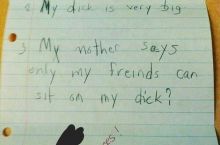 My dick is very big.
3 My mother says
only my freinds can
sit on my dick?